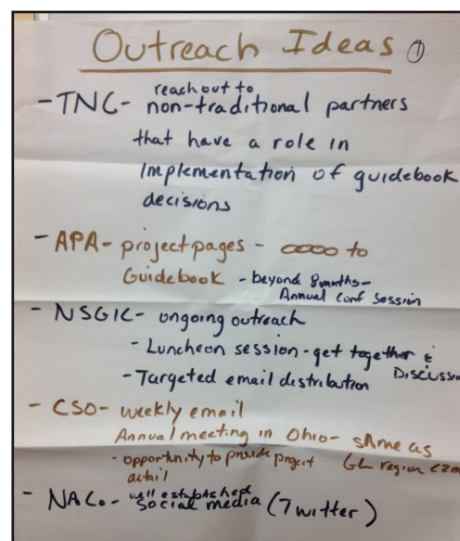 Outreach Ideas ①
reach out to
- TNC - non-traditional partners
that have a role in
implementation of guidebook
decisions
- APA - project pages - to
Guidebook - beyond 8 months -
Annual conf session
- NSGIC - ongoing outreach
- Luncheon session - get together &
DISCUSSIO
- Targeted email distribution
- CSO - weekly email
Annual meeting in Ohio - same as
GL region CZM
- opportunity to provide project
detail
well established
- NACo - social media (Twitter)